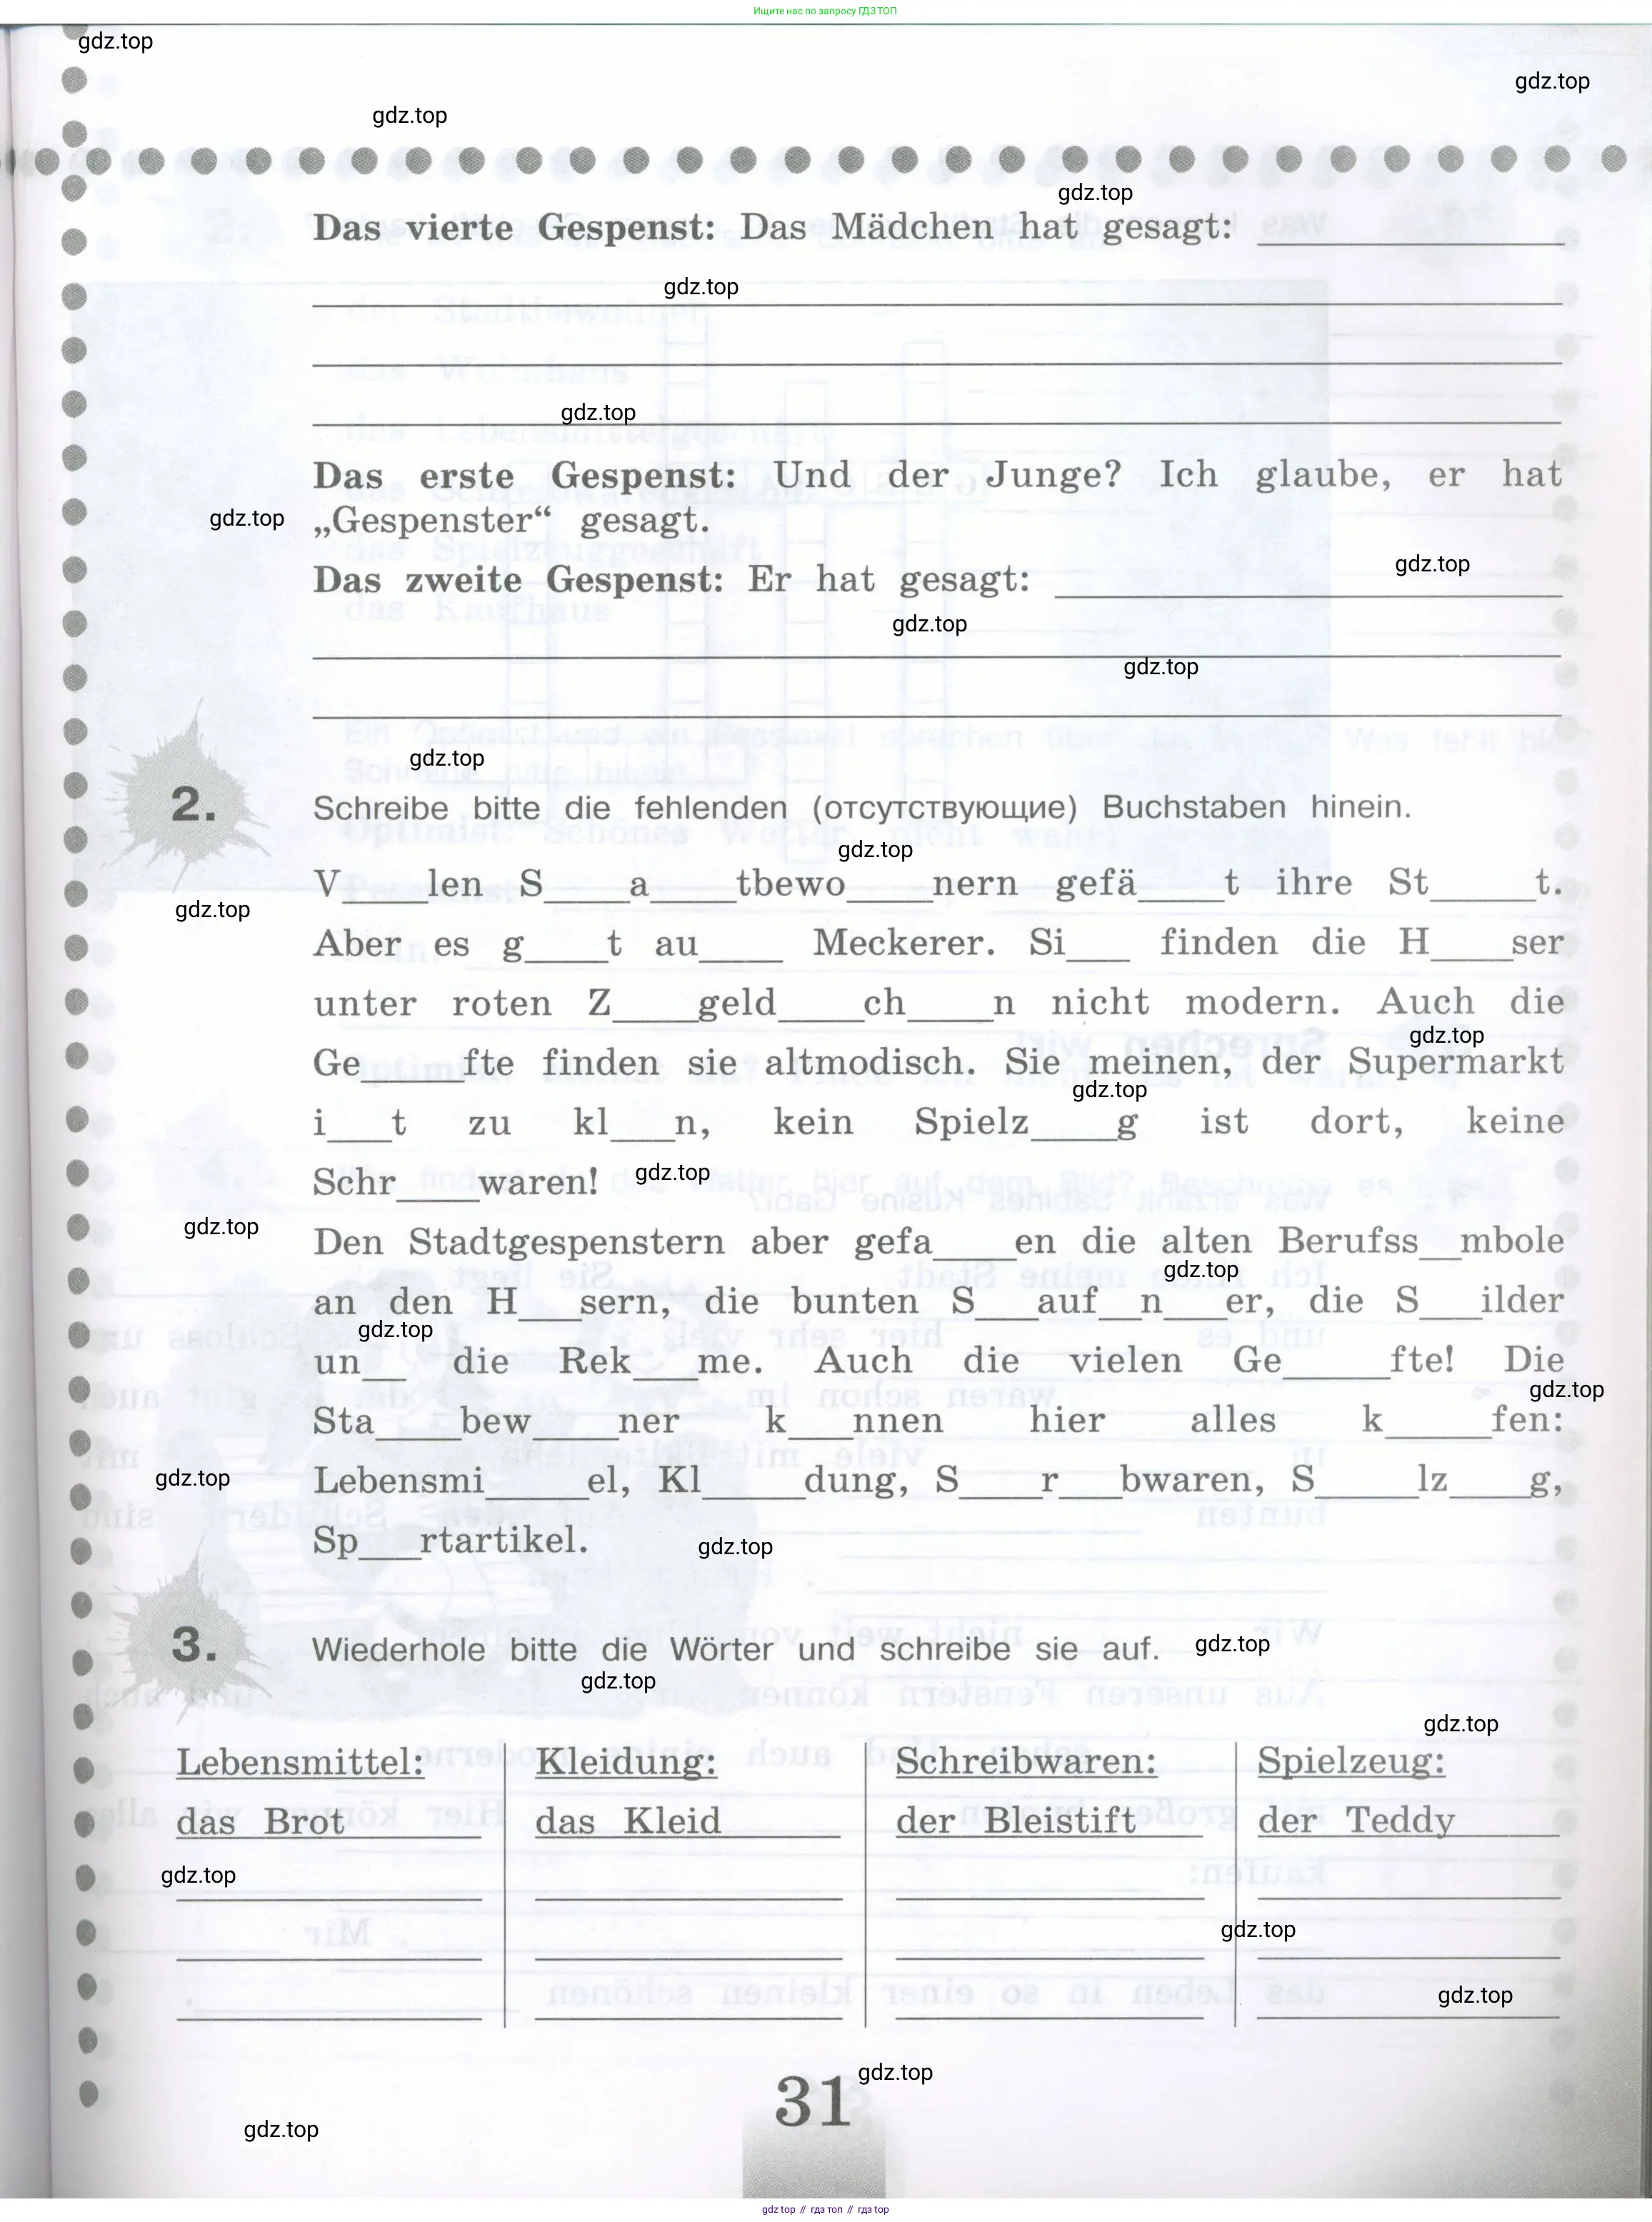 Ищите нас по запросу ГДЗ ТОП
gdz.top
gdz.top
gdz.top
gdz.top
Das vierte Gespenst: Das Mädchen hat gesagt: ____
gdz.top
gdz.top
Das erste Gespenst: Und der Junge? Ich glaube, er hat
gdz.top
„Gespenster“ gesagt.
gdz.top
Das zweite Gespenst: Er hat gesagt: ____
gdz.top
gdz.top
gdz.top
2. Schreibe bitte die fehlenden (отсутствующие) Buchstaben hinein.
gdz.top
V____len S____a____tbewo____nern gefä____t ihre St____t.
gdz.top
Aber es g____t au____ Meckerer. Si___ finden die H____ser
unter roten Z____geld____ch____n nicht modern. Auch die
gdz.top
Ge_____fte finden sie altmodisch. Sie meinen, der Supermarkt
gdz.top
i___t zu kl___n, kein Spielz____g ist dort, keine
Schr____waren!
gdz.top
gdz.top
Den Stadtgespenstern aber gefa____en die alten Berufss__mbole
gdz.top
an den H___sern, die bunten S___auf__n___er, die S___ilder
gdz.top
un__ die Rek___me. Auch die vielen Ge_____fte! Die
gdz.top
Sta____bew____ner k___nnen hier alles k_____fen:
gdz.top
Lebensmi_____el, Kl_____dung, S____r___bwaren, S_____lz____g,
Sp___rtartikel.
gdz.top
3. Wiederhole bitte die Wörter und schreibe sie auf.
gdz.top
gdz.top
gdz.top
Lebensmittel: Kleidung: Schreibwaren: Spielzeug:
das Brot das Kleid der Bleistift der Teddy
gdz.top
gdz.top
gdz.top
gdz.top
31
gdz.top
gdz top // гдз топ // гдз top